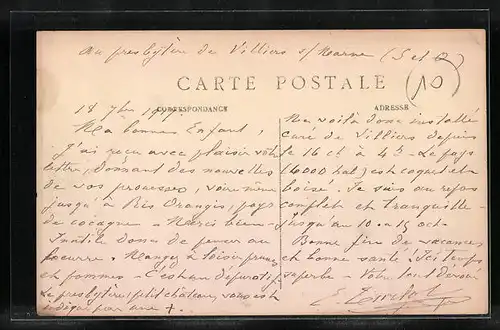 Au presbytère de Villiers s/ Marne (S et O)
CARTE POSTALE
10
18 7bre 191
CORRESPONDANCE
ADRESSE
Ma bonne Enfant,
J'ai reçu avec plaisir votre
lettre, donnant des nouvelles
de vos prouesses, voire même
jusqu'à Ris Orangis, pays
de cocagne - Merci bien -
Inutile donc de penser au
beurre. Mangez à loisir prunes
et pommes - C'est un dépuratif.
Le presbytère, petit château, vous est
par une +
Me voilà donc installé
curé de Villiers depuis
le 16 ct à 4h - Le pays
(6000 hab) est coquet et
boisé. Je suis au repos
complet et tranquille -
jusqu'au 10 - 15 oct -
Bonne fin de vacances
et bonne santé. Ici temps
superbe - Votre tout dévoué
E.